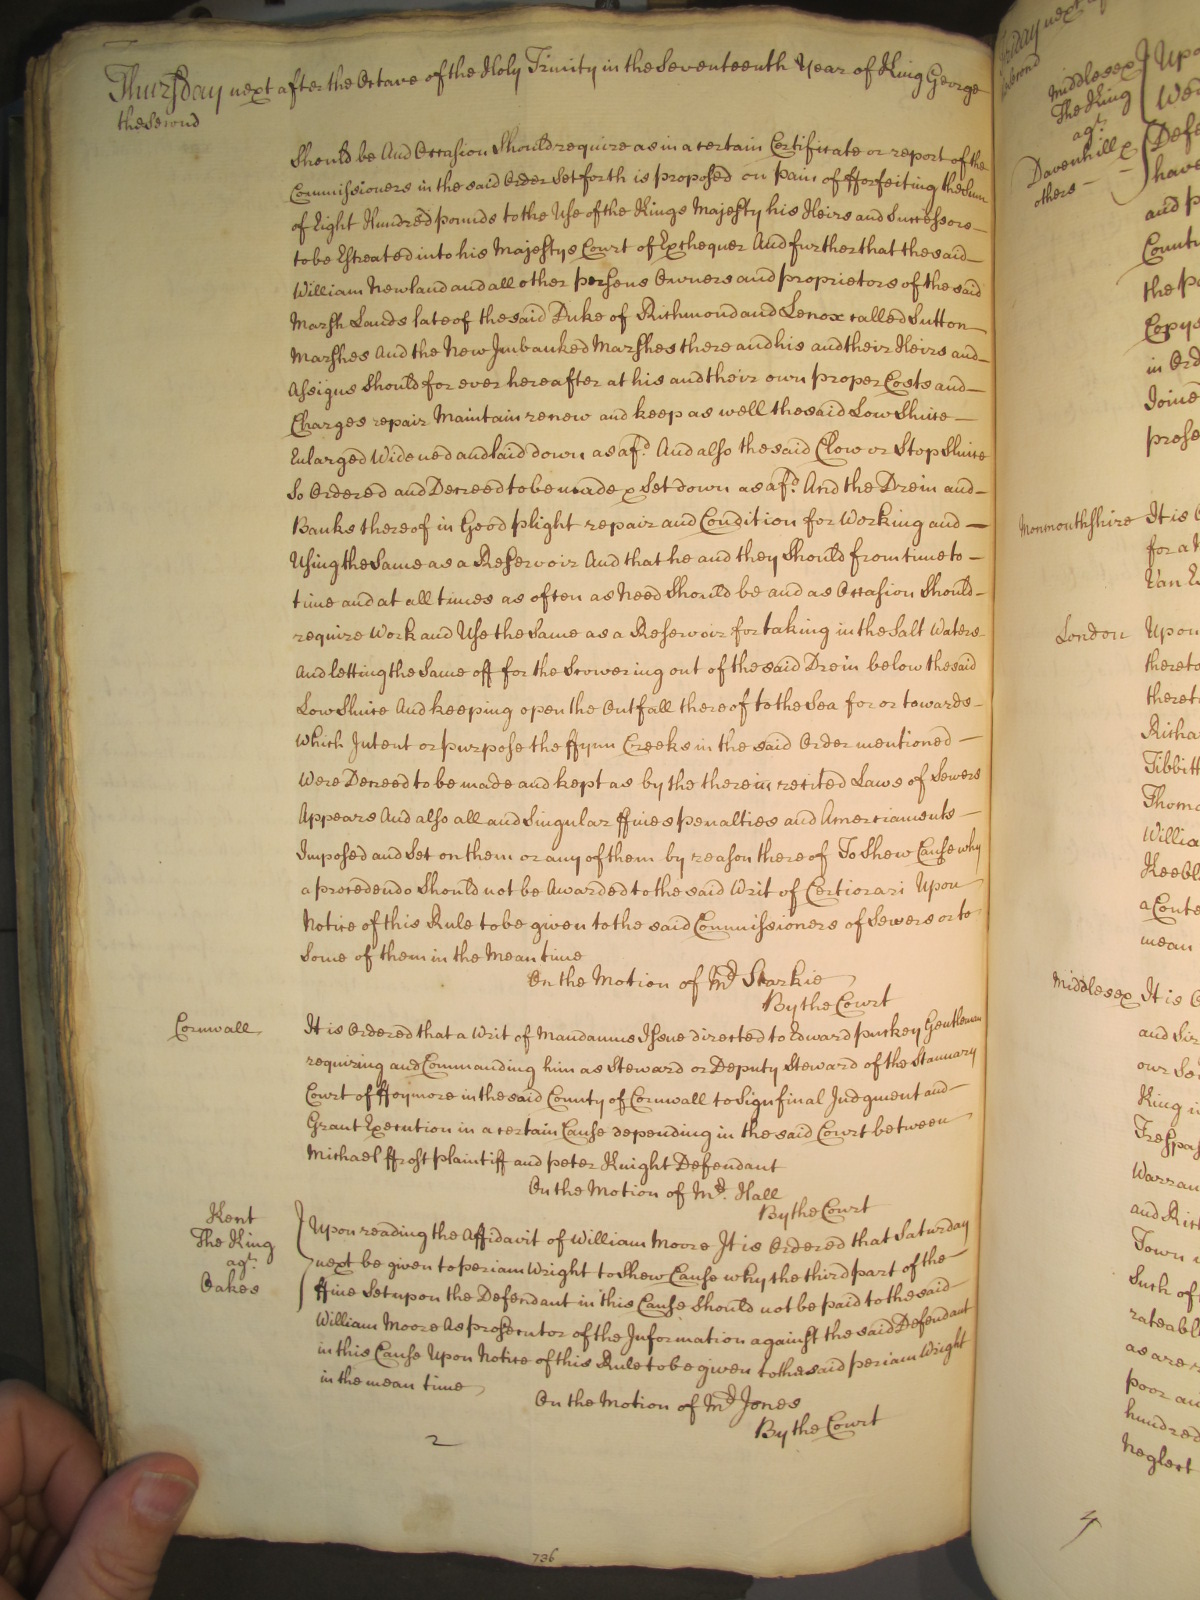 Thursday next after the Octave of the Holy Trinity in the Seventeenth Year of King George
the Second
Should be And Occasion Should require as in a certain Certificate or report of the
Commissioners in the said Order Set forth is proposed on pain of fforfeiting the Sum
of Eight Hundred pounds to the Use of the Kings Majesty his Heirs and Successors
to be Estreated into his Majestys Court of Exchequer And further that the said
William Newland and all other persons Owners and proprietors of the said
Marsh Lands late of the said Duke of Richmond and Lenox called Sutton
Marshes And the New Imbanked Marshes there and his and their Heirs and
Assigns Should for ever hereafter at his and their own proper Costs and
Charges repair Maintain renew and keep as well the said Low Sluice
Enlarged Widened and laid down as afd. And also the said Clow or Stop Sluice
So Ordered and Decreed to be made & Set down as afd. And the Drein and
Banks thereof in Good plight repair and Condition for Working and
Using the Same as a Reservoir And that he and they Should from time to
time and at all times as often as Need Should be and as Occasion Should
require Work and Use the Same as a Reservoir for taking in the Salt Waters
And letting the Same off for the Scowering out of the said Drein below the said
Low Sluice And keeping open the Outfall thereof to the Sea for or towards
Which Intent or purpose the ffynn Creeks in the said Order mentioned
Were Decreed to be made and kept as by the therein recited Laws of Sewers
Appears And also all and Singular ffines penalties and Amerciaments
Imposed and Set on them or any of them by reason thereof To Shew Cause why
a procedendo Should not be Awarded to the said Writ of Certiorari Upon
Notice of this Rule to be given to the said Commissioners of Sewers or to
Some of them in the Mean time
On the Motion of Mr. Starkie
By the Court
Cornwall
It is Ordered that a Writ of Mandamus Issue directed to Edward puckey Gentleman
requiring and Commanding him as Steward or Deputy Steward of the Stannary
Court of ffoymore in the said County of Cornwall to Sign final Judgment and
Grant Execution in a certain Cause depending in the said Court between
Michael ffrost plaintiff and peter Knight Defendant
On the Motion of Mr. Hall
By the Court
Kent
The King
agt.
Oakes
Upon reading the Affidavit of William Moore It is Ordered that Saturday
next be given to periam Wright to Shew Cause why the third part of the
ffine Set upon the Defendant in this Cause Should not be paid to the said
William Moore As prosecutor of the Information against the said Defendant
in this Cause Upon Notice of this Rule to be given to the said periam Wright
in the mean time
On the Motion of Mr. Jones
By the Court
2
736
Friday next
Middlesex
The King
agt.
Davenhill &
others
Upo
We
Defe
have
and p
Count
the pa
Copys
in Ord
Joine
prose
Monmouthshire
It is O
for a
London
Upon
thereto
theret
Richa
Tibbitt
Thoma
Willia
Keebl
a Conte
mean
Middlesex
It is O
and Sir
our So
King i
Trespas
Warran
and Ric
Town
Such of
rateabl
as are
poor an
hundred
Neglect
4